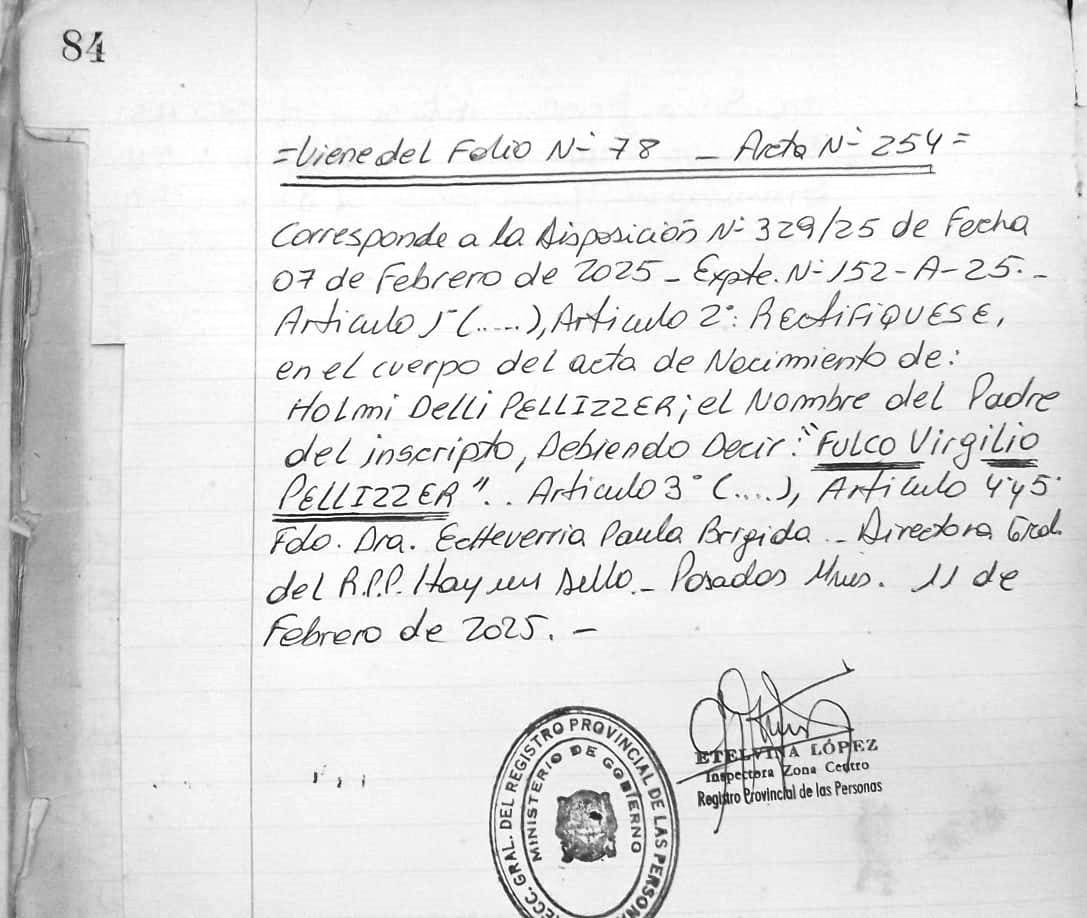 84
=Viene del Folio N- 78 _ Acta N- 254=
Corresponde a la Disposición N- 329/25 de Fecha
07 de Febrero de 2025_ Expte. N-152-A-25._
Articulo 1° (.....), Articulo 2°: RECTIFIQUESE,
en el cuerpo del acta de Nacimiento de:
HOLMI DELLI PELLIZZER; el Nombre del Padre
del inscripto, Debiendo Decir: "FULCO Virgilio
PELLIZZER".. Articulo 3° (....), Articulo 4° y 5°
Fdo. Dra. Echeverria Paula Brigida _ Directora Gral.
del R.P.P. Hay un Sello._ Posadas Mnes. 11 de
Febrero de 2025. _
ETELVINA LÓPEZ
Inspectora Zona Centro
Registro Provincial de las Personas
RECC. GRAL. DEL REGISTRO PROVINCIAL DE LAS PERSONA
MINISTERIO DE GOBIERNO